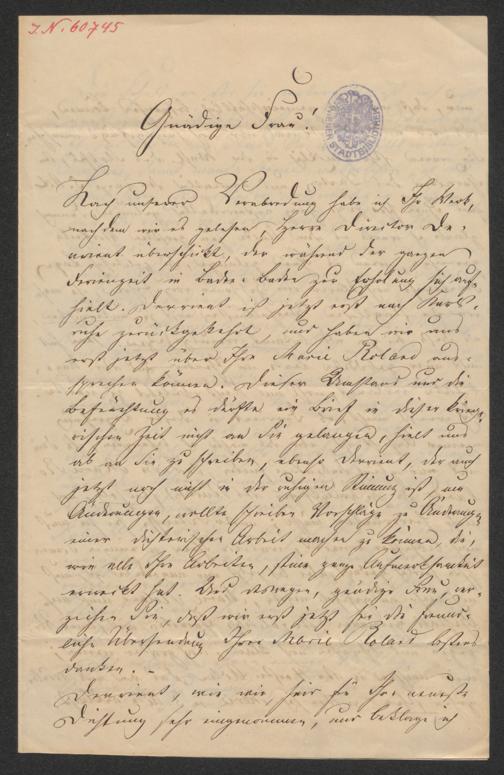 J.N. 60745
WIENER STADTBIBLIOTHEK
Gnädige Frau!
Nach unserer Verabredung habe ich Ihr Werk,
nachdem wir es gelesen, Herrn Director De-
vrient überschickt, der während der ganzen
Ferienzeit in Baden-Baden zur Erholung sich auf-
hielt. Devrient ist jetzt erst nach Karls-
ruhe zurückgekehrt, und haben wir uns
erst jetzt über Ihre Marie Roland aus-
sprechen können. Dieser Umstand und die
Befürchtung es dürfte ein Brief in dieser kriege-
rischen Zeit nicht an Sie gelangen, hielt uns
ab an Sie zu schreiben, ebenso Devrient, der auch
jetzt noch nicht in der ruhigen Stimmung ist, um
Änderungen, wollte schreiben Vorschläge zu Änderungen
einer dichterischen Arbeit machen zu können, die,
wie alle Ihre Arbeiten, seine ganze Aufmerksamkeit
erweckt hat. Und deswegen, gnädige Frau, ver-
zeihen Sie, daß wir erst jetzt für die freund-
liche Übersendung Ihrer Marie Roland bestens
danken. –
Devrient, wie wir sind für Ihre neueste
Dichtung sehr eingenommen, und beklage ich